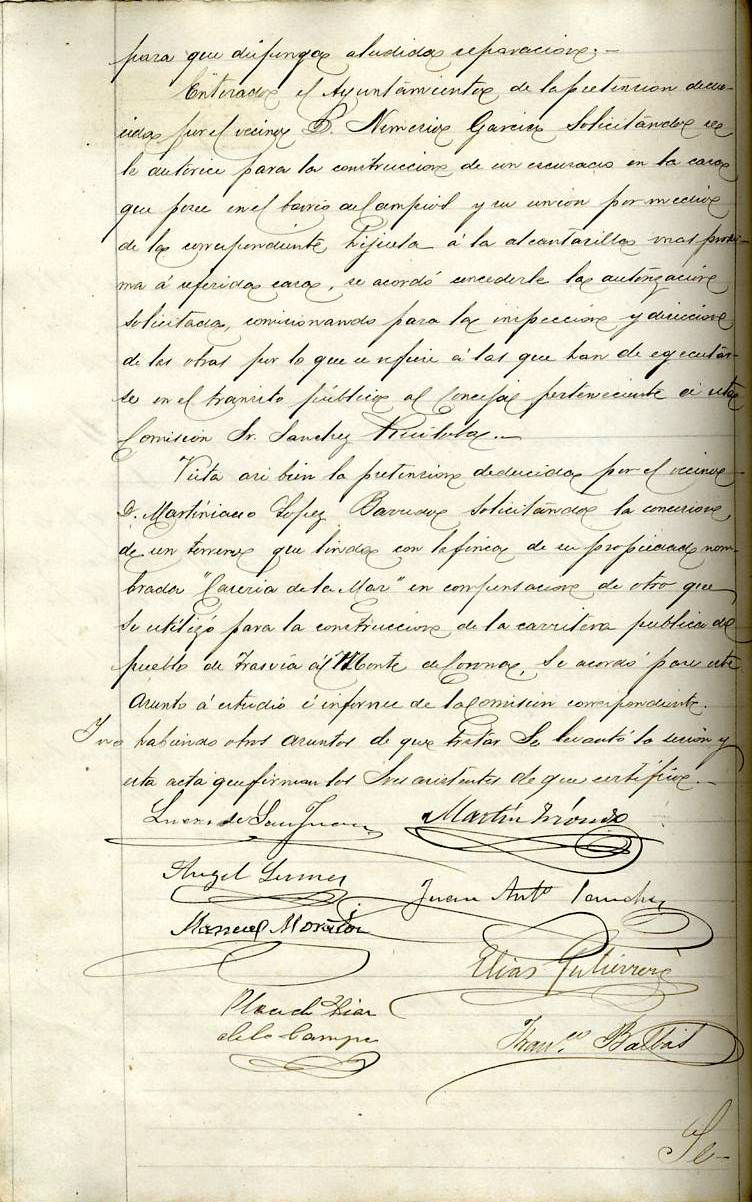 para que disponga aludida reparacion.—
Enterado el Ayuntamiento de la pretension dedu-
cida por el vecino D. Nemesio Garcia solicitando se
le autorice para la construccion de un escusado en la casa
que posee en el barrio del Campiol y su union por medio
de la correspondiente hijuela á la alcantarilla mas proxi-
ma á referida casa, se acordó concederle la autorizacion
solicitada, comisionando para la inspeccion y direccion
de las obras por lo que se refiere á las que han de egecutar-
se en el transito público al Concejal perteneciente á esta
Comision Sr. Sanchez
Vista asi bien la pretension deducida por el vecino
D. Martiniano Lopez solicitando la concesion
de un terreno que linda con la finca de su propiedad nom-
brada "Caseria de la Mar" en compensacion de otro que
se utilizó para la construccion de la carretera publica del
pueblo de Trasvia al Monte de Corona, Se acordó pase este
asunto á estudio é informe de la Comision correspondiente.
Y no habiendo otros asuntos de que tratar Se levantó la sesion y
esta acta que firman los Sres asistentes de que certifico.—
Lucas de San Juan
Martin
Angel
Juan Antº Sanchez
Manuel Morator
Elias Gutierrez
Placid Diaz
de la Campa
Franco Balbás
Se-